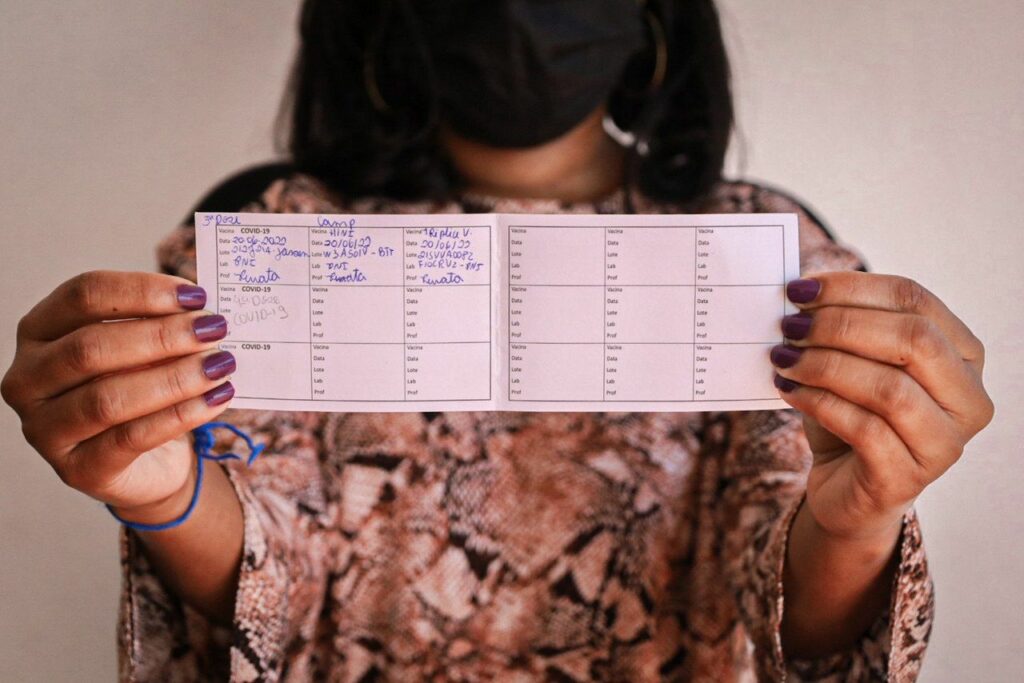 3ª Dose
Camp
Vacina COVID-19
Data 20-06-2022
Lote 212J21A-Janssen
Lab PNI
Prof Renata
Vacina H1N1
Data 20/06/22
Lote
Lab PNI
Prof Renata
Vacina Triplice V.
Data 20/06/22
Lote
Lab FIOCRUZ - PNI
Prof Renata
Vacina
Data
Lote
Lab
Prof
Vacina
Data
Lote
Lab
Prof
Vacina
Data
Lote
Lab
Prof
Vacina COVID-19
Data 4ª Dose
Lote COVID-19
Lab
Prof
Vacina
Data
Lote
Lab
Prof
Vacina
Data
Lote
Lab
Prof
Vacina
Data
Lote
Lab
Prof
Vacina
Data
Lote
Lab
Prof
Vacina
Data
Lote
Lab
Prof
Vacina COVID-19
Vacina
Data
Lote
Lab
Prof
Vacina
Data
Lote
Lab
Prof
Vacina
Data
Lote
Lab
Prof
Vacina
Data
Lote
Lab
Prof
Vacina
Data
Lote
Lab
Prof